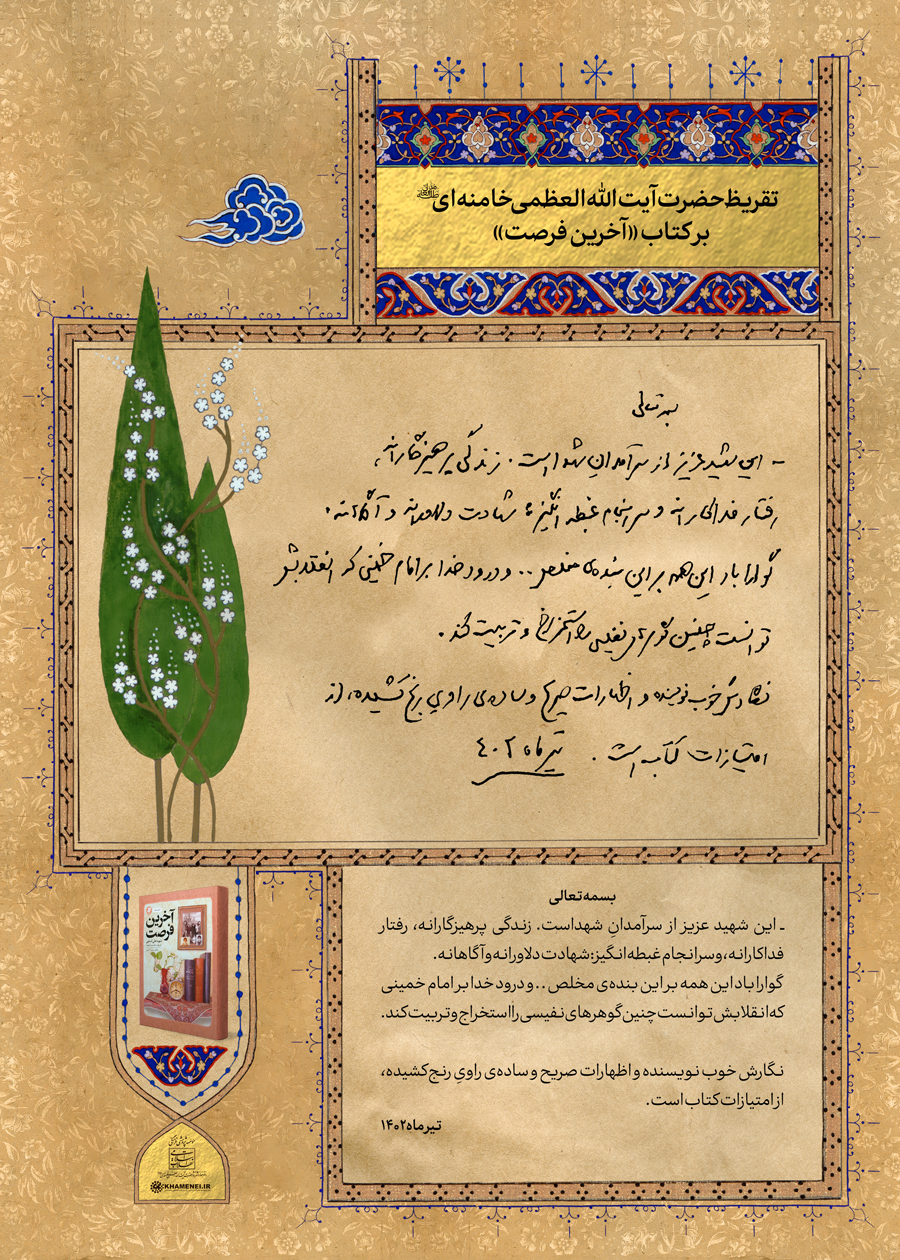 تقریظ حضرت آیت الله العظمی خامنه‌ای
بر کتاب «آخرین فرصت»
بسمه تعالی
ـ این شهید عزیز از سرآمدان شهدا است. زندگی پرهیزگارانه،
رفتار فداکارانه و سرانجام غبطه انگیز: شهادت دلاورانه و آگاهانه.
گوارا باد این همه بر این بنده‌ی مخلص .. و درود خدا بر امام خمینی که انقلابش
توانست چنین گوهرهای نفیسی را استخراج و تربیت کند.
نگارش خوب نویسنده و اظهارات صریح و ساده‌ی راویِ رنج کشیده، از
امتیازات کتاب است. تیرماه ۴۰۲
بسمه تعالی
ـ این شهید عزیز از سرآمدانِ شهداست. زندگی پرهیزگارانه، رفتار
فداکارانه، و سرانجام غبطه‌انگیز: شهادت دلاورانه و آگاهانه.
گوارا باد این همه بر این بنده‌ی مخلص .. و درود خدا بر امام خمینی
که انقلابش توانست چنین گوهرهای نفیسی را استخراج و تربیت کند.
نگارش خوب نویسنده و اظهارات صریح و ساده‌ی راویِ رنج کشیده،
از امتیازات کتاب است.
تیرماه ۱۴۰۲
آخرین
فرصت
KHAMENEI.IR